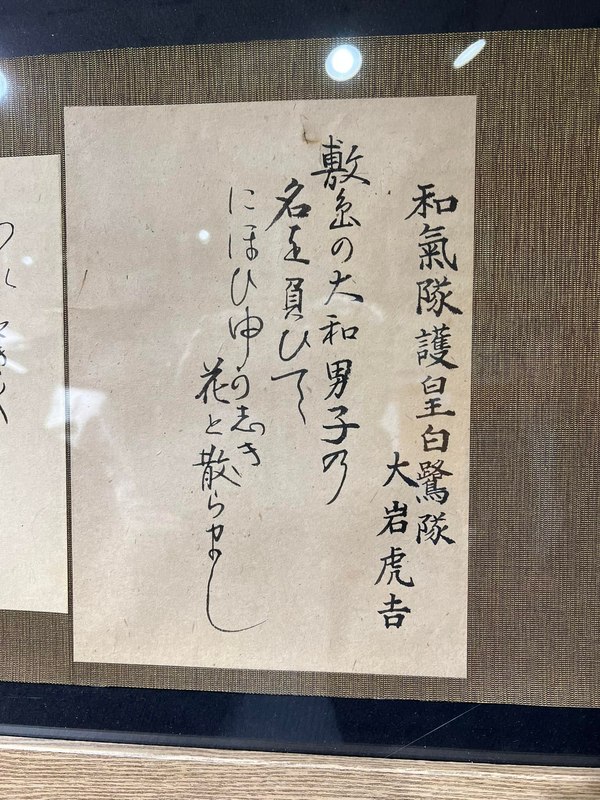 和氣隊護皇白鷺隊
大岩虎𠮷
敷島の大和男子乃
名を負ひて
にほひゆかしき
花と散らまし